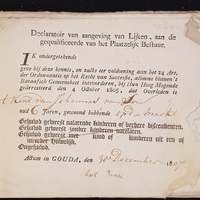 Declaratoir van aangeving van Lijken, aan de
gequalificeerde van het Plaatzelijk Bestuur.
IK ondergetekende
geve bij deze kennis, en zulks ter voldoening aan het 24 Art.
der Ordonnantie op het Recht van Successie, alomme binnen's
Bataafsch Gemeenebest intevoeren, bij Hun Hoog Mogende
gearresteerd den 4 October 1805, dat Overleden is
't Kind van Johannes van
oud Jaren, gewoond hebbende op de Markt
Gehuwd geweest nalatende kinderen of verdere discendenten.
Gehuwd geweest zonder kinderen natelaten.
Gehuwd geweest en kinderen of kind uit
er Huwelijk.
Ongehuwd.
Actum in GOUDA, den 30 December 1807